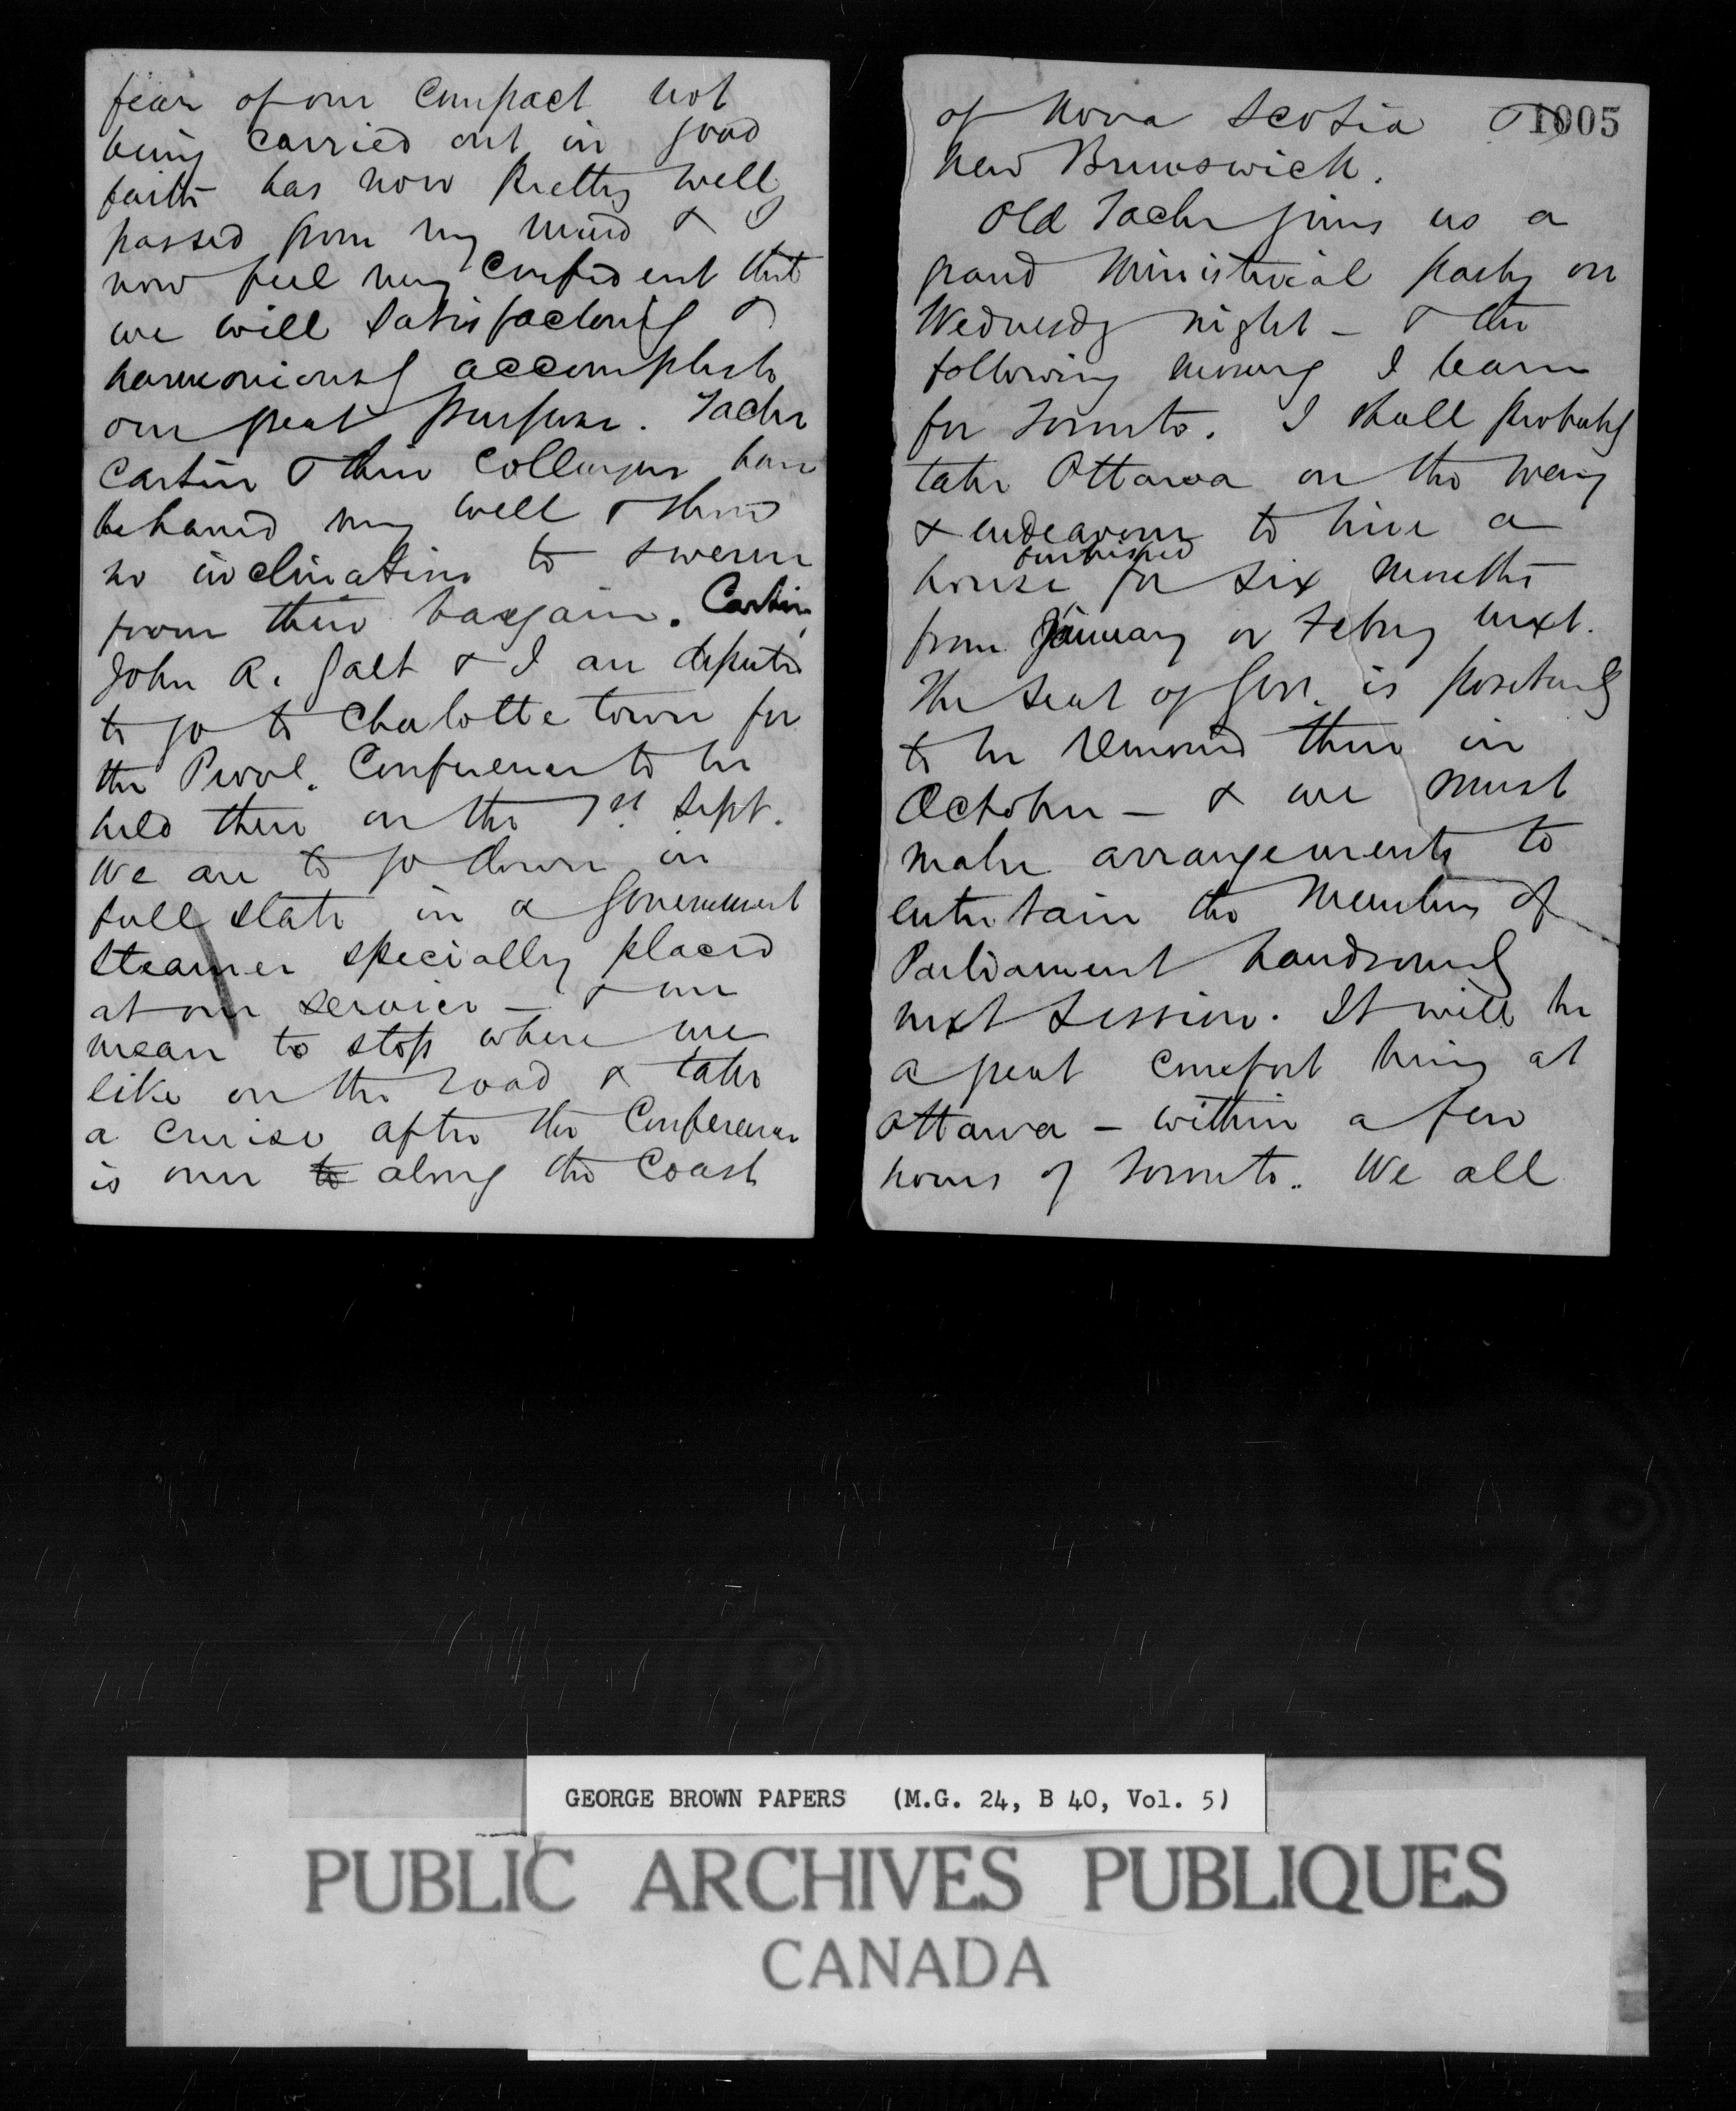 fear of our compact not
being carried out in good
faith has now pretty well
passed from my mind & I
now feel very confident that
we will satisfactorily &
harmoniously accomplish
our great purpose. Tache
Cartier & their colleagues have
behaved very well & show
no inclination to swerve
from their bargain. Cartier,
John A. Galt & I are deputed
to go to Charlotte town for
the Provl. Conference to be
held there on the 1st Sept.
We are to go down in
full state in a Government
steamer specially placed
at our service — & we
mean to stop where we
like on the road & take
a cruise after the Conference
is over to along the Coast
1005
of Nova Scotia &
New Brunswick.
Old Tache gives us a
grand Ministerial party on
Wednesdy night — & the
following morning I leave
for Toronto. I shall probably
take Ottawa on the way
& endeavour to hire a
furnished
house for six months
from January or Febry next.
The Seat of Gov. is positively
to be removed there in
October — & we must
make arrangements to
entertain the Members of
Parliament handsomely
next Session. It will be
a great comfort being at
Ottawa — within a few
hours of Toronto. We all
GEORGE BROWN PAPERS (M.G. 24, B 40, Vol. 5)
PUBLIC ARCHIVES PUBLIQUES
CANADA